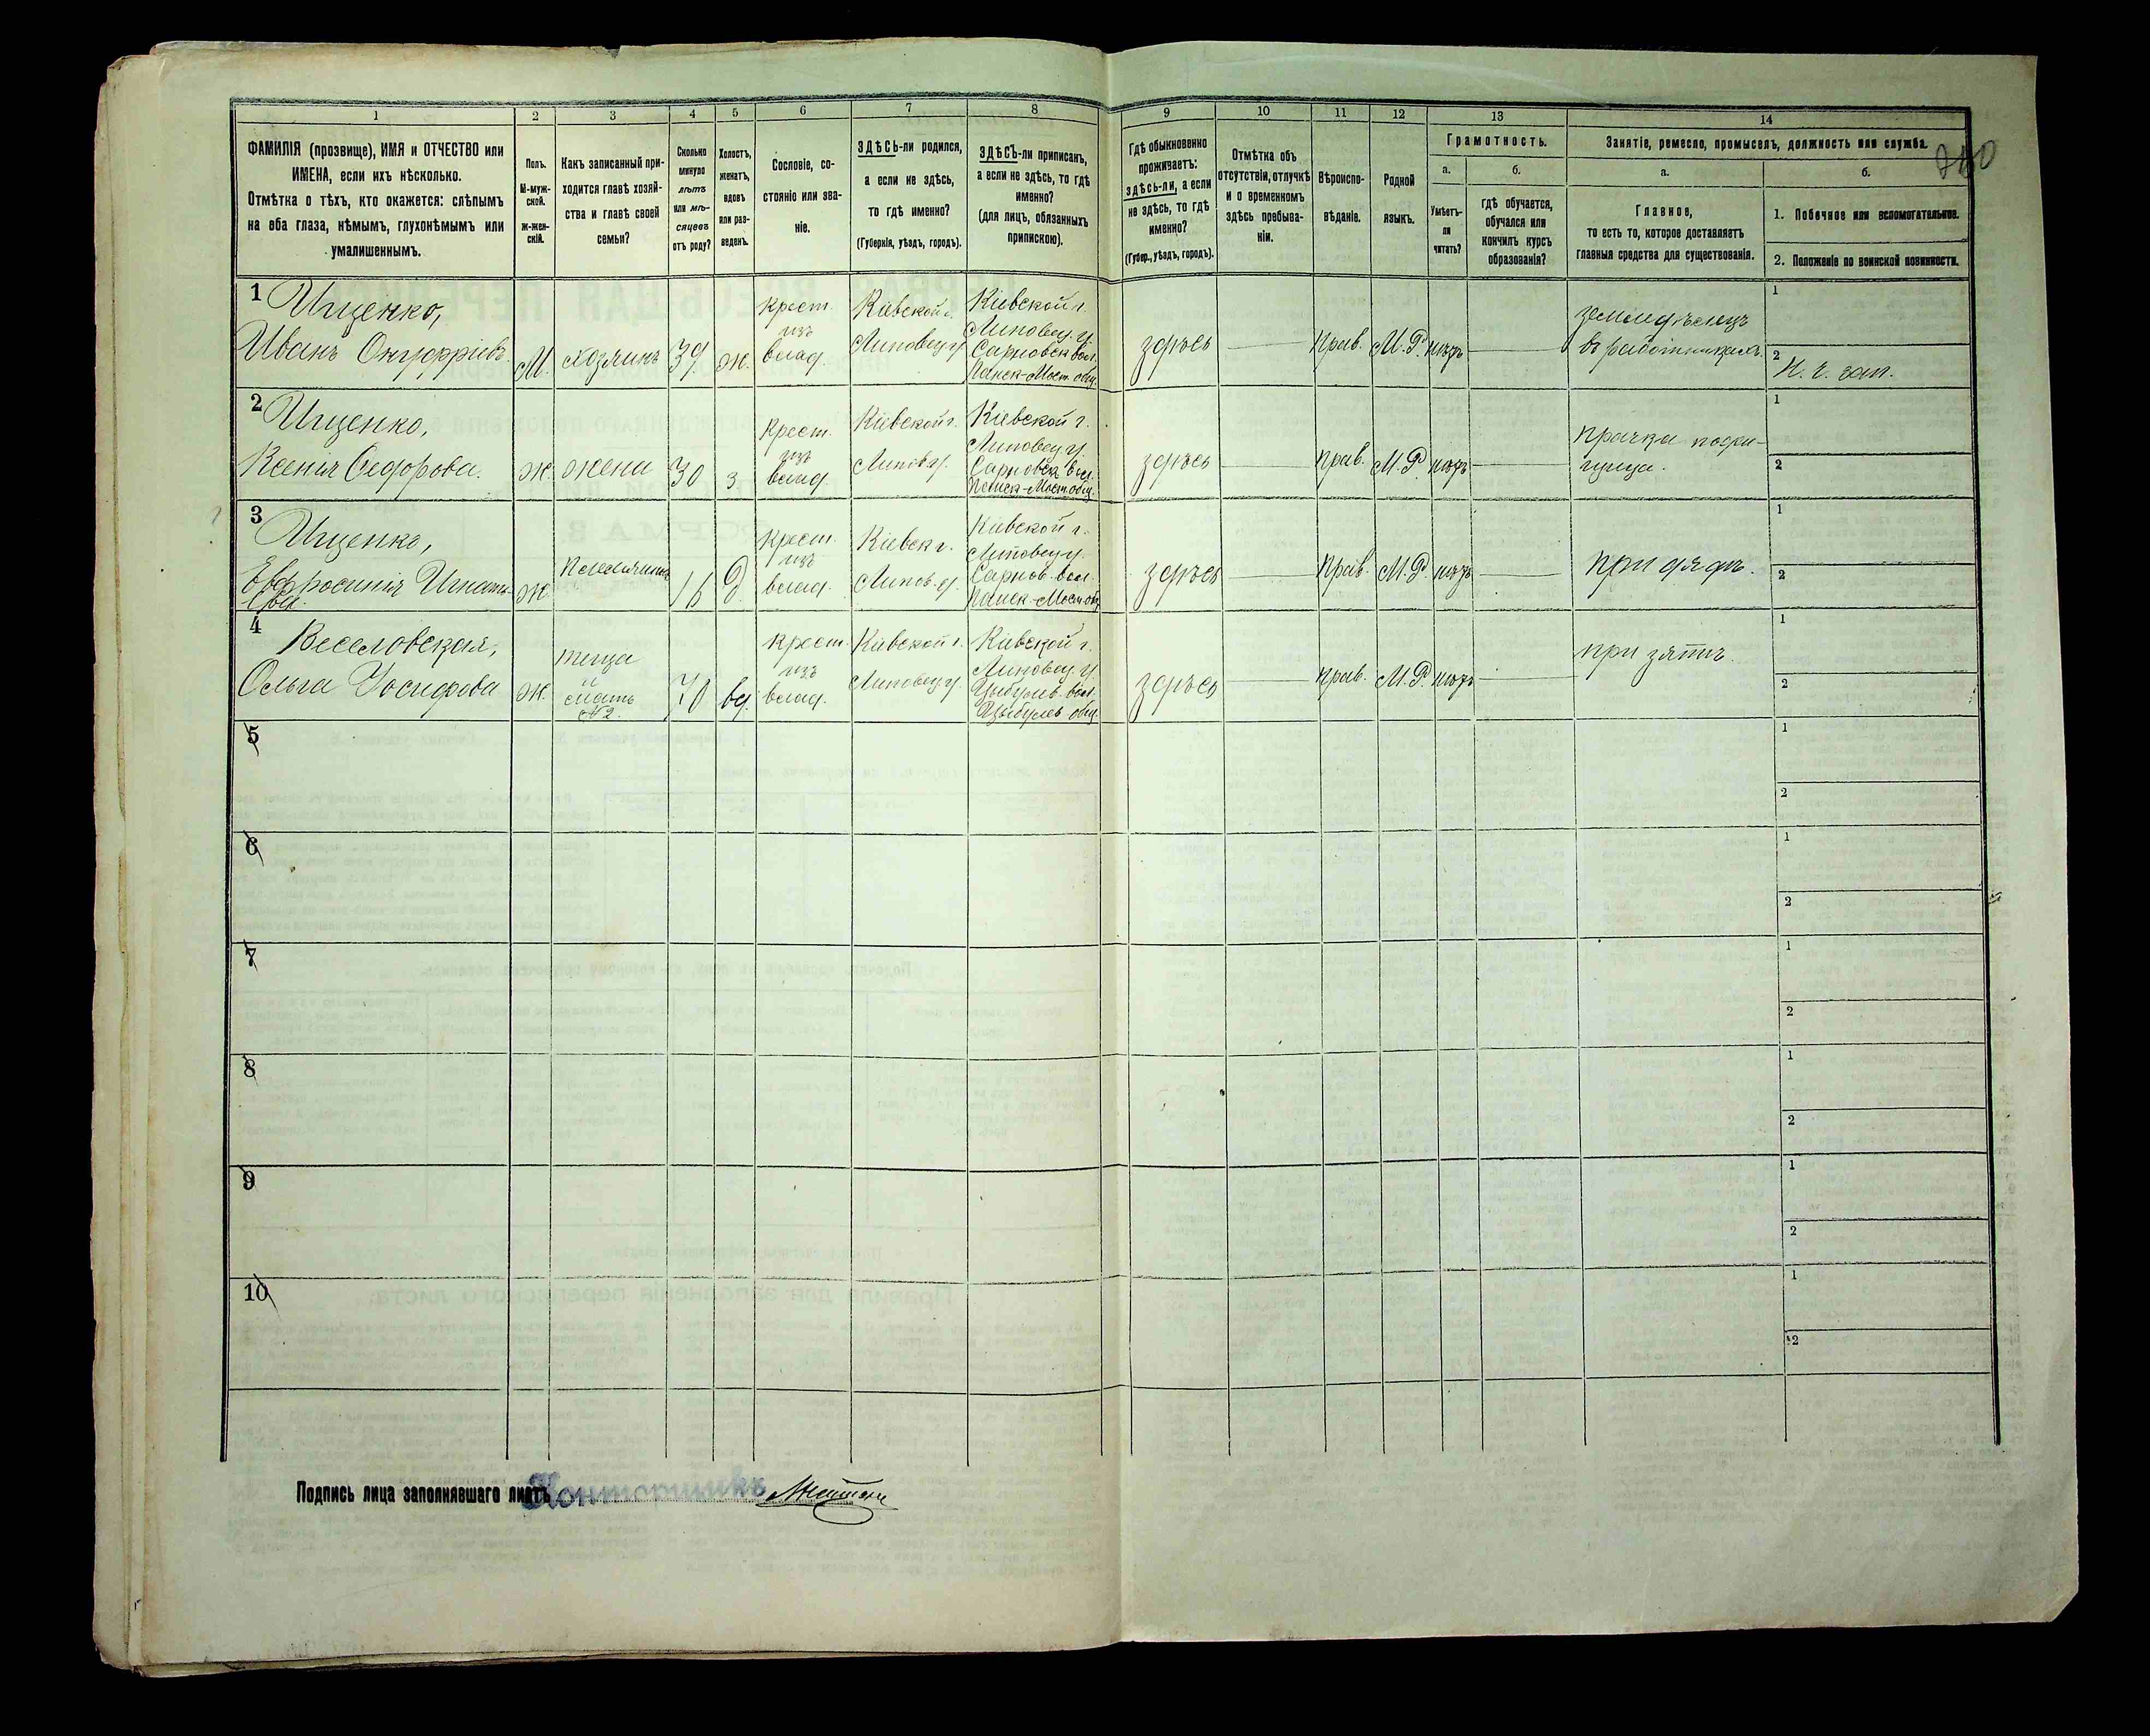 1 2 3 4 5 6 7 8 9 10 11 12 13 14
ФАМИЛІЯ (прозвище), ИМЯ и ОТЧЕСТВО или
ИМЕНА, если ихъ нѣсколько.
Отмѣтка о тѣхъ, кто окажется: слѣпымъ
на оба глаза, нѣмымъ, глухонѣмымъ или
умалишеннымъ.
Полъ.
М-муж-
ской.
Ж-жен-
скій.
Какъ записанный при-
ходится главѣ хозяй-
ства и главѣ своей
семьи?
Сколько
минуло
лѣтъ
или мѣ-
сяцевъ
отъ роду?
Холостъ,
женатъ,
вдовъ
или раз-
веденъ.
Сословіе, со-
стояніе или зва-
ніе.
ЗДѢСЬ-ли родился,
а если не здѣсь,
то гдѣ именно?
(Губернія, уѣздъ, городъ).
ЗДѢСЬ-ли приписанъ,
а если не здѣсь, то гдѣ
именно?
(для лицъ, обязанныхъ
припискою).
Гдѣ обыкновенно
проживаетъ:
здѣсь-ли, а если
не здѣсь, то гдѣ
именно?
(Губер., уѣздъ, городъ).
Отмѣтка объ
отсутствіи, отлучкѣ
и о временномъ
здѣсь пребыва-
ніи.
Вѣроиспо-
вѣданіе.
Родной
языкъ.
Грамотность.
а.
Умѣетъ-
ли
читать?
б.
гдѣ обучается,
обучался или
кончилъ курсъ
образованія?
Занятіе, ремесло, промыселъ, должность или служба.
а.
Главное,
то есть то, которое доставляетъ
главныя средства для существованія.
б.
1. Побочное или вспомогательное.
2. Положеніе по воинской повинности.
1
Ищенко,
Иванъ Онуфріевъ
М.
хозяинъ
39
ж.
крест.
изъ
влад.
Кіевской г.
Липовец. у.
Кіевской г.
Липовец. у.
Сарновск. вол.
Панск-Мост. общ.
здѣсь
Прав.
М. Р.
нѣтъ
земледѣлецъ
въ работникахъ.
1
2
Н. ч. зап.
2
Ищенко,
Ксенія Федорова.
ж.
жена
30
з
крест.
изъ
влад.
Кіевской г.
Липов. у.
Кіевской г.
Липовец. у.
Сарновск. вол.
Панск-Мост. общ.
здѣсь
прав.
М. Р.
нѣтъ
прачка поден-
щица.
1
2
3
Ищенко,
Евфросинія Игнать-
ева.
ж.
16
Д.
крест.
изъ
влад.
Кіевск г.
Липов. у.
Кіевской г.
Липовец. у.
Сарнов. вол.
Панск-Мост. общ.
здѣсь
Прав.
М. Р.
нѣтъ
при дядѣ.
1
2
4
Веселовская,
Ольга Іосифова
ж.
теща
и
мать
№ 2.
70
вд.
крест.
изъ
влад.
Кіевской г.
Липовец. у.
Кіевской г.
Липовец. у.
Цыбулев. вол.
Цыбулев общ.
здѣсь
прав.
М. Р.
нѣтъ
при зятѣ.
1
2
5
1
2
6
1
2
7
1
2
8
1
2
9
1
2
10
1
2
Подпись лица заполнявшаго листъ Конторщикъ